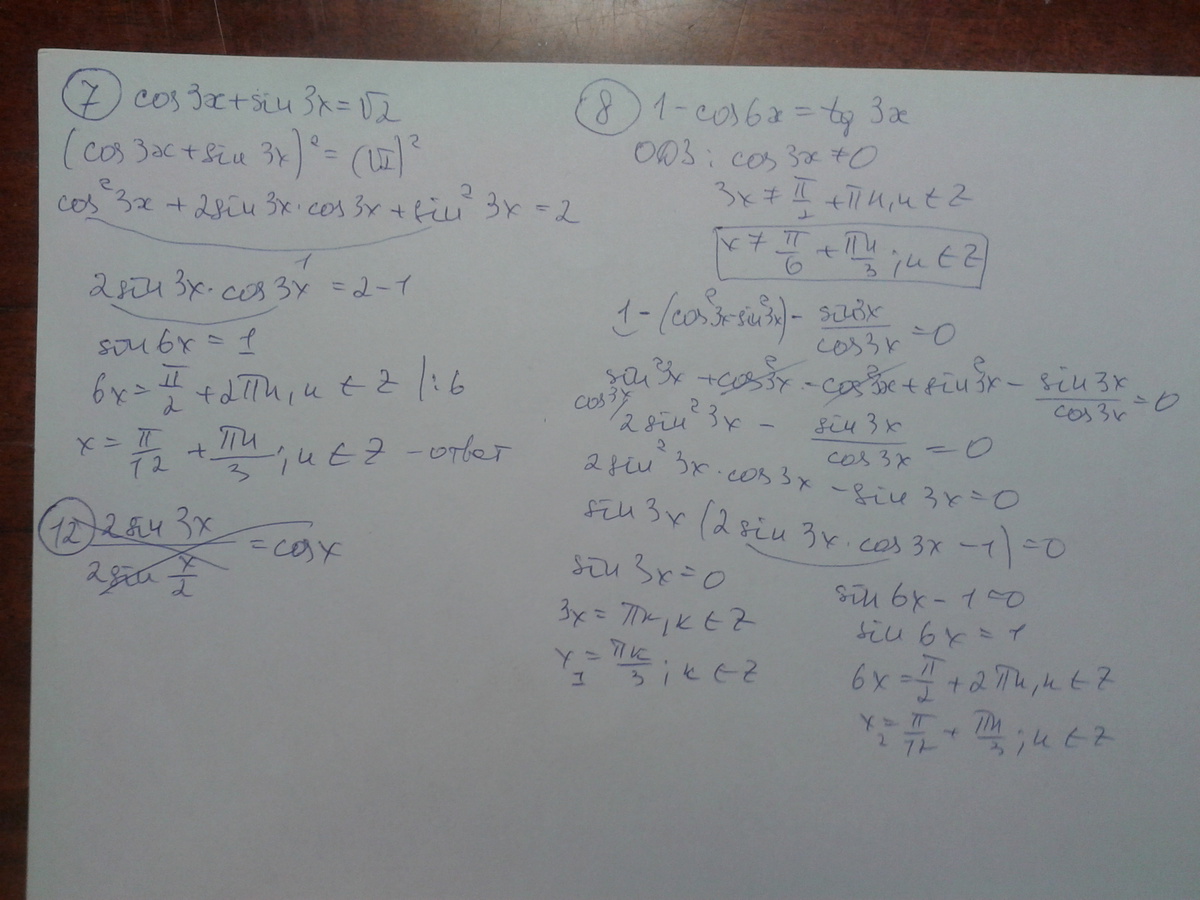 7 cos 3x + sin 3x = √2
(cos 3x + sin 3x)² = (√2)²
cos² 3x + 2sin 3x · cos 3x + sin² 3x = 2
1
2sin 3x · cos 3x = 2 - 1
sin 6x = 1
6x = π/2 + 2πn, n ∈ Z /:6
x = π/12 + πn/3; n ∈ Z - ответ
12 2sin 3x / 2sin x/2 = cos x
8 1 - cos 6x = tg 3x
ОДЗ: cos 3x ≠ 0
3x ≠ π/2 + πn, n ∈ Z
x ≠ π/6 + πn/3; n ∈ Z
1 - (cos² 3x - sin² 3x) - sin 3x / cos 3x = 0
sin² 3x + cos² 3x - cos² 3x + sin² 3x - sin 3x / cos 3x = 0
cos 3x / 2sin² 3x - sin 3x / cos 3x = 0
2sin² 3x · cos 3x - sin 3x = 0
sin 3x (2sin 3x · cos 3x - 1) = 0
sin 3x = 0
3x = πk, k ∈ Z
x₁ = πk/3; k ∈ Z
sin 6x - 1 = 0
sin 6x = 1
6x = π/2 + 2πn, n ∈ Z
x₂ = π/12 + πn/3; n ∈ Z